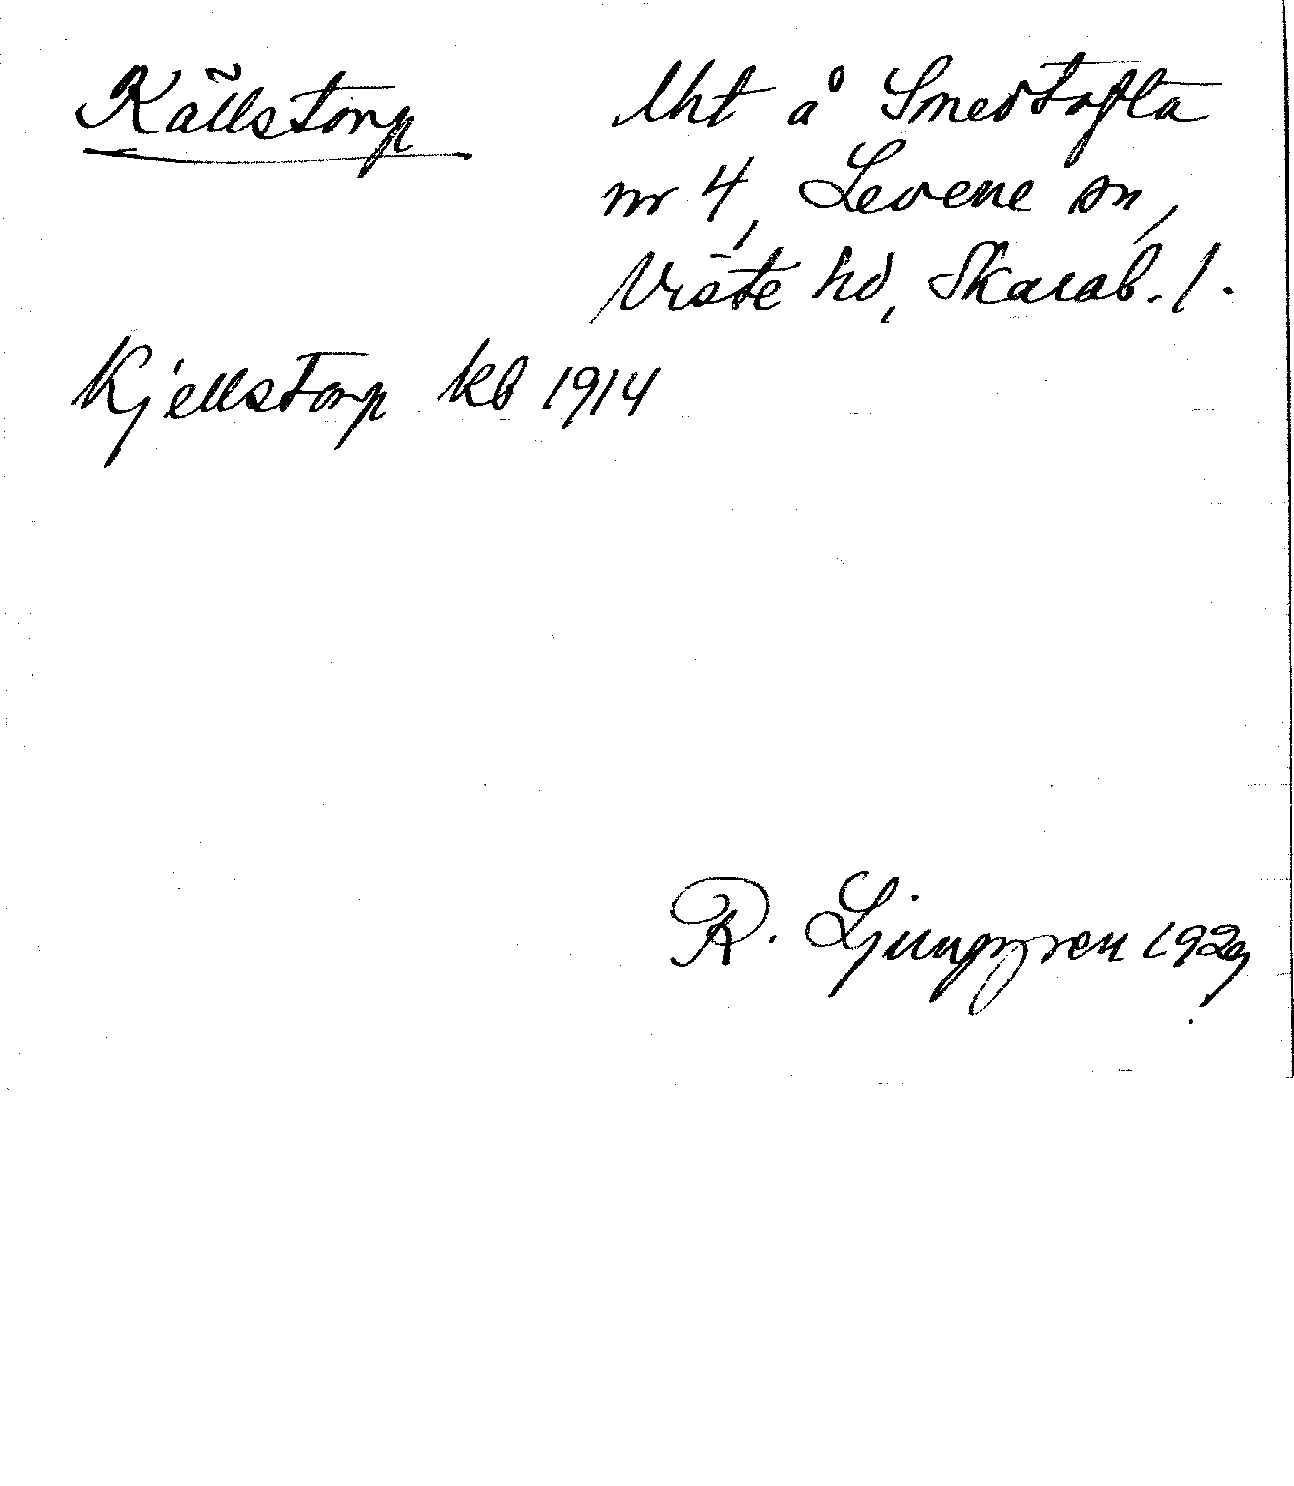 Källstorp
Uht å Smedtofta
nr 4, Levene sn,
Viste hd, Skarab. l.
Kjellstorp kb 1914
R. Ljunggren 1929